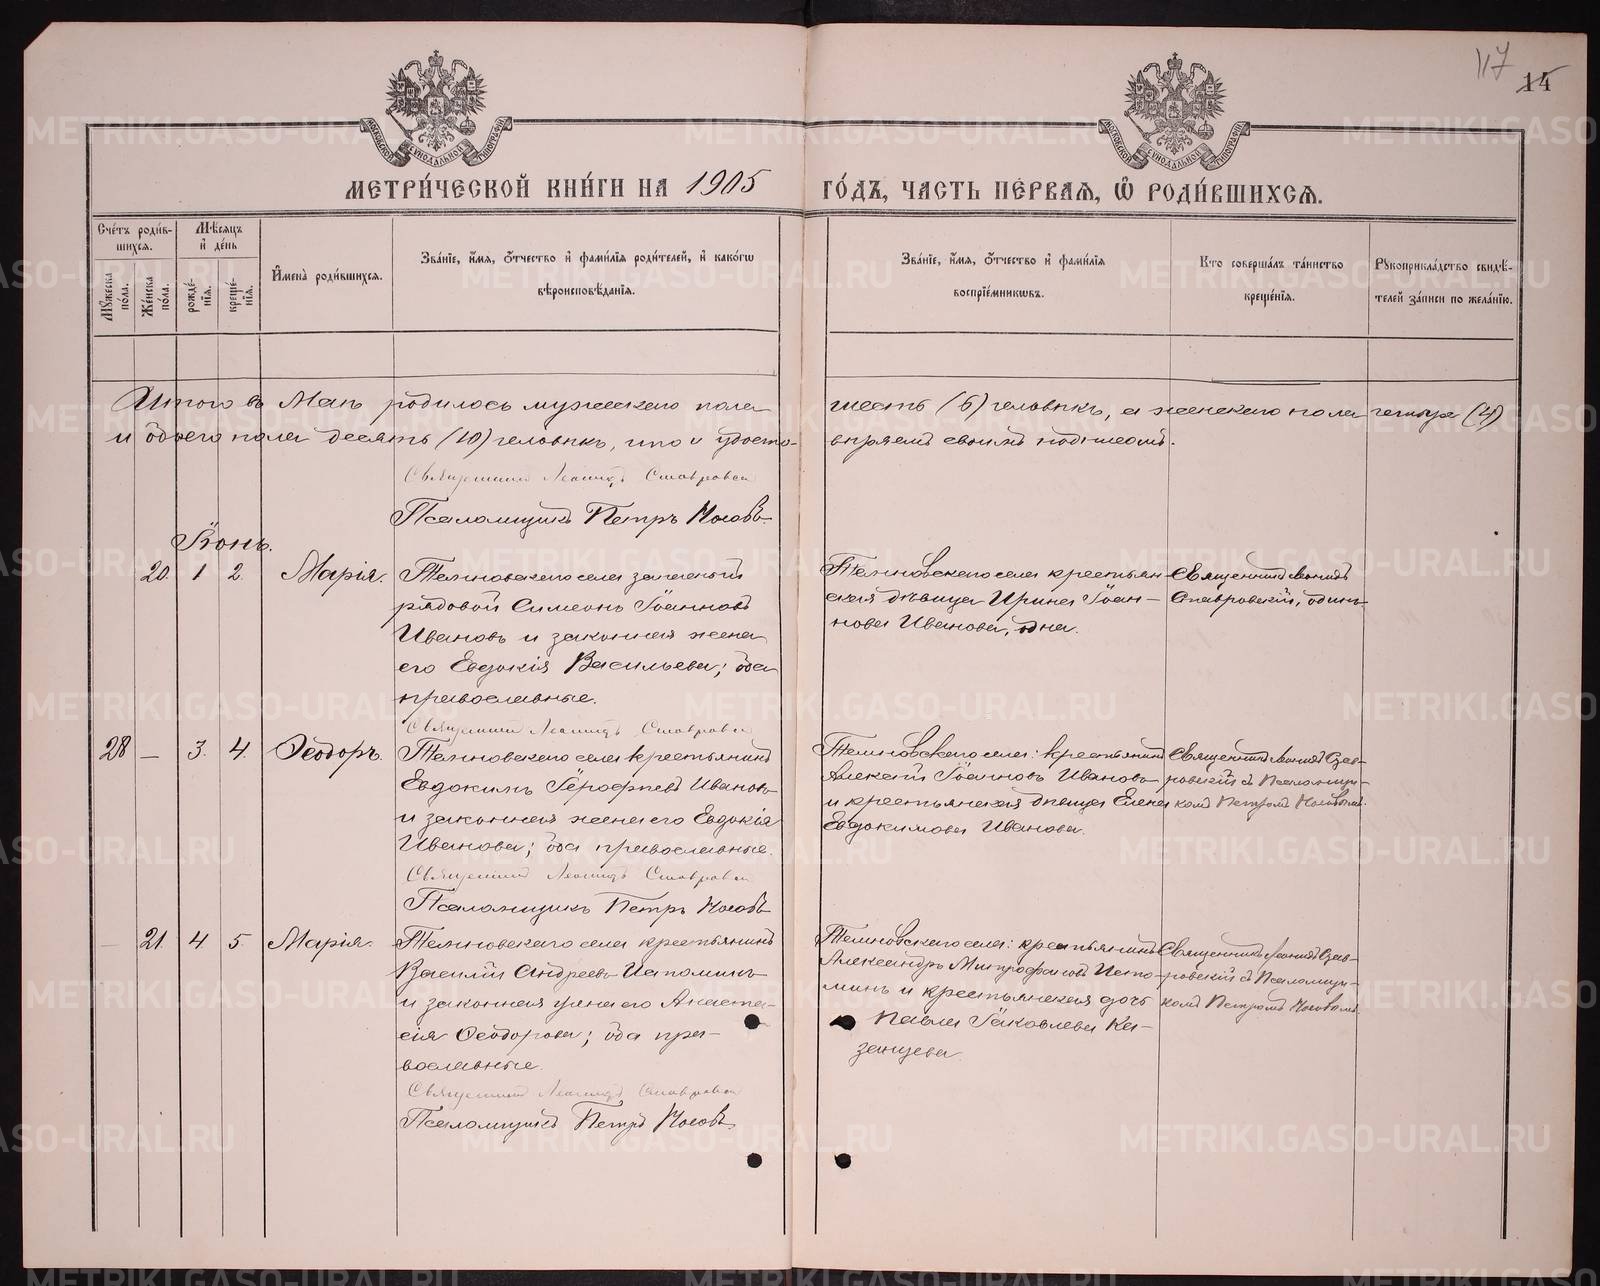 117
14
МОСКОВСКОЙ СИНОДАЛЬНОЙ ТИПОГРАФІИ
МОСКОВСКОЙ СИНОДАЛЬНОЙ ТИПОГРАФІИ
МЕТРИ́ЧЕСКОЙ КНИ́ГИ НА 1905 ГО́ДЪ, ЧАСТЬ ПЕ́РВАЯ, Ѡ РОДИ́ВШИХСЯ.
Сче́тъ роди́в-
шихся.
Мꙋ́жеска по́ла.
Же́нска по́ла.
Мѣ́сяцъ
и҆ де́нь
рожде́-
нїя.
креще́-
нїя.
И҆мена̀ роди́вшихся.
Зва́нїе, и҆́мя, ѻ҆́тчество и҆ фами́лїя роди́телей, и҆ како́гѡ
вѣроисповѣ́данїя.
Зва́нїе, и҆́мя, ѻ҆́тчество и҆ фами́лїя
воспрїе́мникѡвъ.
Кто соверша́лъ та́инство
креще́нїя.
Рꙋкоприкла́дство свидѣ́-
телей за́писи по жела́нїю.
Итого въ Маѣ родилось мужескаго пола шесть (6) человѣкъ, а женскаго пола четыре (4)
и обоего пола десять (10) человѣкъ, что и удосто-
вѣряемъ своимъ подписомъ.
Священникъ Леонидъ Ставровскій
Псаломщикъ Петръ Носовъ
Іюнь.
20. 1 2. Марія.
Темновскаго села запасный
рядовой Симеонъ Іоанновъ
Ивановъ и законная жена
его Евдокія Васильева; оба
православные.
Священникъ Леонидъ Ставровскій
Темновскаго села крестьян-
ская дѣвица Ирина Іоан-
нова Иванова, одна.
Священникъ Леонидъ
Ставровскій, одинъ
28 — 3. 4. Ѳеодоръ.
Темновскаго села крестьянинъ
Евдокимъ Ивановъ
и законная жена его Евдокія
Иванова; оба православные.
Священникъ Леонидъ Ставровскій
Псаломщикъ Петръ Носовъ
Темновскаго села: крестьянинъ
Алексѣй Іоанновъ Ивановъ
и крестьянская дѣвица Елена
Евдокимова Иванова.
Священникъ Леонидъ Став-
ровскій съ Псаломщи-
комъ Петромъ Носовымъ.
— 21. 4 5. Марія.
Темновскаго села крестьянинъ
Василій Андреевъ Истоминъ
и законная жена его Анаста-
сія Ѳеодорова; оба пра-
вославные.
Священникъ Леонидъ Ставровскій
Псаломщикъ Петръ Носовъ.
Темновскаго села: крестьянинъ
Александръ Митрофановъ Исто-
минъ и крестьянская дочь
Павла Іаковлева Ка-
занцева.
Священникъ Леонидъ Став-
ровскій съ Псаломщи-
комъ Петромъ Носовымъ
METRIKI.GASO-URAL.RU